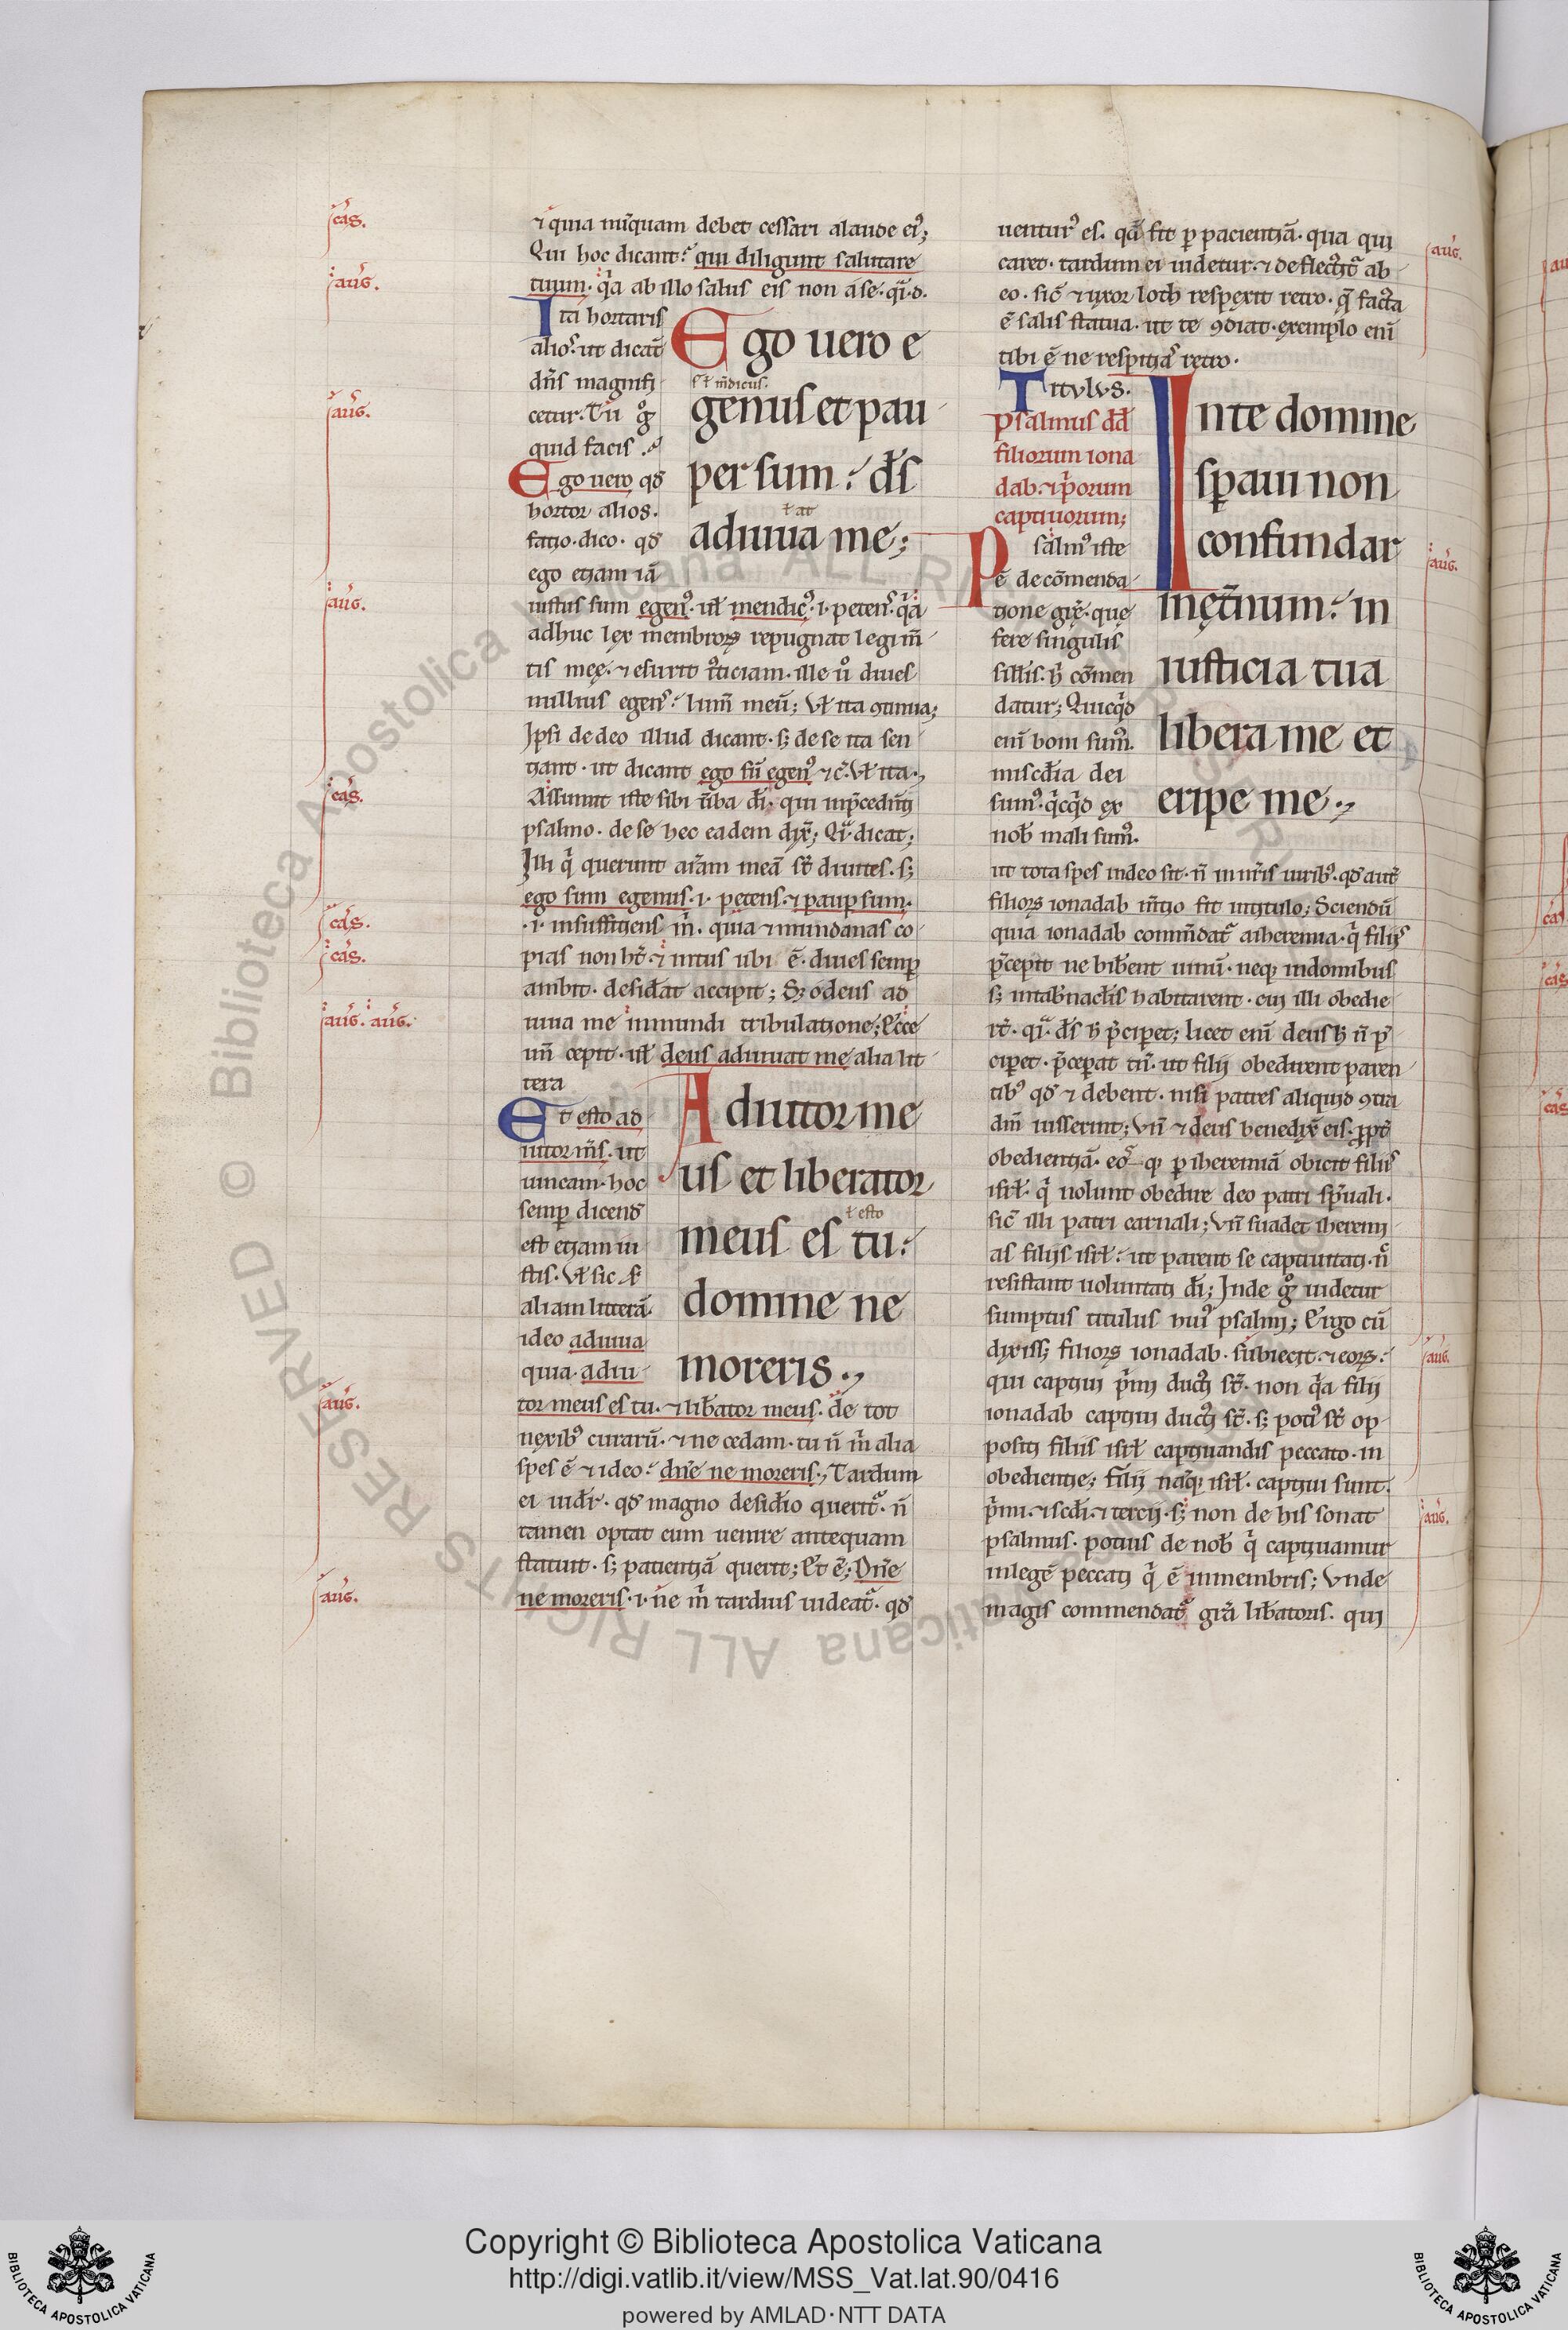 ⁊ quia nu̅quam debet cessari alaude eiꝰ;
Qui hoc dicant? qui diligunt salutare
tuum· qͥa ab illo salus eis non a se· qͣi·d·
Ita hortaris
alioˢ· ut dicat̅
dn̅s magnifi
cetur. Tu gͦ
quid facis
Ego uero qd̕
hortor alios.
fatio·dico· qd̕
ego etiam ia̅
Ego uero e
ł m̅dicus.
genus et pau
per sum: d̅s
ł at
adiuua me;
iustus sum egenꝰ· uł mendicꝰ·i·petenˢ· qͥa
adhuc lex membroꝝ repugnat legi m̅
tis meę· ⁊ esurio iusticiam· ille u̅o diues
nullius egenˢ: lum̅ meu̅; Vł ita ꝯtinua;
Ipsi de deo illud dicant· sꝫ de se ita sen
tiant· ut dicant ego su̅ egenꝰ ⁊ c̅· Vł ita·,
Assumit iste sibi u̅ba d̅i· qui inp̅cedn̅ti
psalmo· de se hec eadem dix̅; Qͣi· dicat;
Illi qͥ querunt aı̅am mea̅ st̅ diuites· sꝫ
ego sum egenus·i· petens· ⁊ paup sum·
·i· insufficiens m̅· quia ⁊ mundanas co
pias non ht̅· ⁊ intus ubi e̅· diues semp
ambit· desid̅at accipit; Sꝫ o deus ad
iuua me inmundi tribulatione; Ecce
un̅ cepit· uł deus adiuuat me alia lit
tera
Et esto ad
iutor m̅s· ut
uincam· hoc
semp dicend̕
est etiam iu
stis· Vł sic ſꝫ
aliam littera̅
ideo adiuua
quia· adiu
Adiutor me
us et liberator
ł esto
meus es tu:
domine ne
moreris·,
tor meus es tu· ⁊ lib̅ator meus· de tot
nexibꝰ curaru̅· ⁊ ne cedam· tu u̅ m̅ alia
spes e̅ ⁊ ideo: dn̅e ne moreris·, Tardum
ei uid̅r· qd̕ magno desid̅io querit᷑· n̅
tamen optat eum uenire antequam
statuit· sꝫ patientia̅ querit; Et e̅; Dn̅e
ne moreris·i· ne m̅ tardius uideat᷑· qd̕
uenturꝰ es· qd̅ fit p pacientia̅· qua qui
caret· tardum ei uidetur· ⁊ deflectit᷑ ab
eo· sic̅ ⁊ uxor loth respexit retro· q̅ facta
e̅ salis statua· ut te ꝯdiat· exemplo eni̅
tibi e̅ ne respitiaˢ retro·
Titvlvs.
psalmus dd̅
filiorum iona
dab· ⁊ p̅orum
captiuorum;
Psalmꝰ iste
e̅ de co̅menda
tione gr̅ę· que
fere singulis
sillis· h̅ co̅men
datur; Quicqͥd
eni̅ boni sumꝰ·
misc̅dia dei
sumꝰ· qͥcqͥd ex
nob̅ mali sumꝰ·
In te domine
sp̅aui non
confundar
inęt̅num: in
iusticia tua
libera me et
eripe me·,
ut tota spes indeo sit· n̅ in nr̅is uiribꝰ· qd̕ aut̅
filioꝝ ionadab in̅tio fit intitulo; Sciendu̅
quia ionadab comm̅dat᷑ aiheremia· qͥ filiis
p̅cepit ne bib̅ent uinu̅· neqꝫ indomibus
sꝫ intab̅nacl̅is habitarent· cui illi obedie
rt̅· qͣi· d̅s h̅ p̅ciperet; licet eni̅ deus h̅ n̅ p̅
ciperet· p̅ceperat tn̅· ut filii obedirent paren
tibꝰ qd̕ ⁊ debent· nisi patres aliquid ꝯtra
dm̅ iusserint; Vn̅ ⁊ deus benedix̅ eis· ꝓpt̅
obedientia̅· eoꝝ· qꝫ p iheremia̅ obicit filiis
isrł· qͥ nolunt obedire deo patri sp̅uali·
sic̅ illi patri carnali; Vn̅ suadet iheremi
as filiis isrł: ut parent se captiuitati· nͦ
resistant uoluntati d̅i; Inde gͦ uidetur
sumptus titulus huiꝰ psalmi; Ergo cu̅
dixissꝫ filioꝝ ionadab· subiecit· ⁊ eoꝝ:
qui captiui p̅mi ducti st̅· non qͥa filii
ionadab captiui ducti st̅· sꝫ potiꝰ st̅ op
positi filiis isrł captiuandis peccato· in
obedientie; filii naqꝫ isrł· captiui sunt·
p̅mi· ⁊ sc̅di· ⁊ tercii· sꝫ non de his sonat
psalmus· potius de nob̅ qͥ captiuamur
inlege̅ peccati qͥ e̅ inmembris; Vnde
magis commendat᷑ gr̅a lib̅atoris· qui
cas̅.
aug̅.
aug̅.
aug̅.
cas̅.
cas̅.
cas̅.
aug̅. aug̅.
aug̅.
aug̅.
aug̅.
aug̅.
aug̅.
aug̅.
© Biblioteca Apostolica Vaticana ALL RIGHTS RESERVED
Copyright © Biblioteca Apostolica Vaticana
http://digi.vatlib.it/view/MSS_Vat.lat.90/0416
powered by AMLAD·NTT DATA
BIBLIOTECA APOSTOLICA VATICANA
BIBLIOTECA APOSTOLICA VATICANA